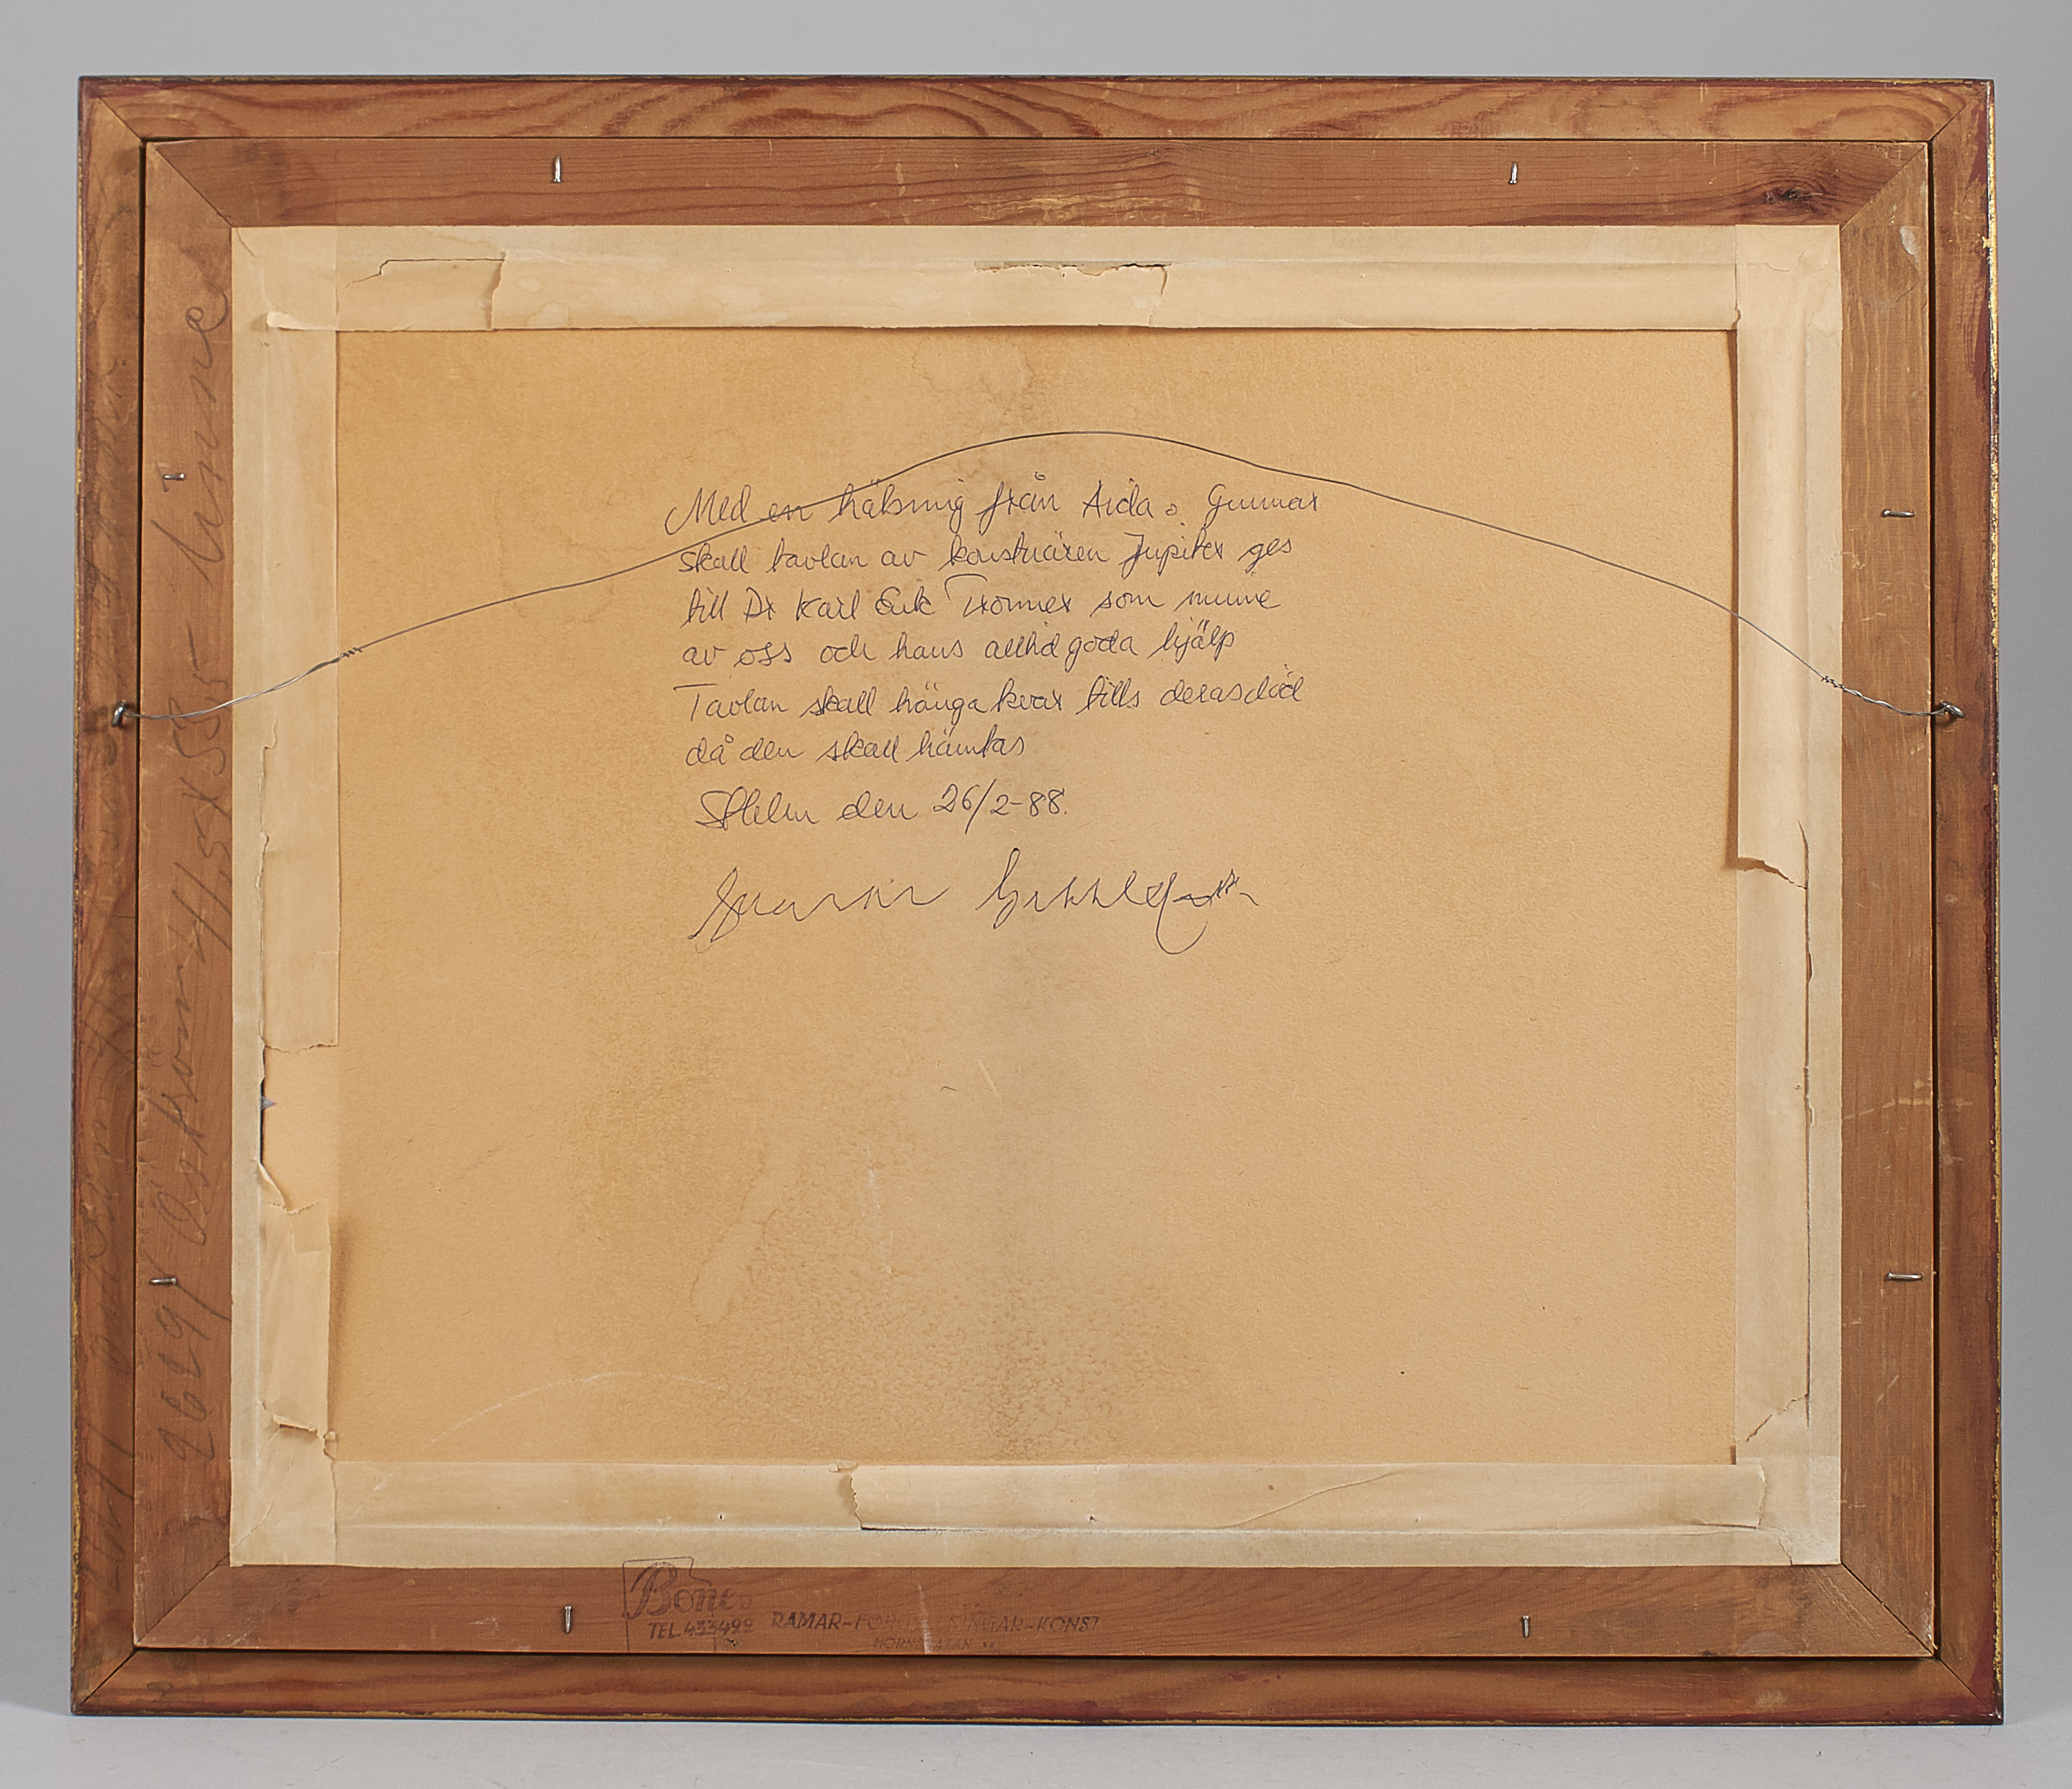 Med en hälsning från Aida o Gunnar
skall tavlan av konstnären Jupiter ges
till Dr Karl Erik Tronner som minne
av oss och hans alltid goda hjälp
Tavlan skall hänga kvar tills derasdöd
då den skall hämtas
Sthlm den 26/2-88.
Gunnar
26491 Åström 41,5x55,5 linne
Bone
TEL.433499 RAMAR-FÖRGYLLNINGAR-KONST
HORNSGATAN